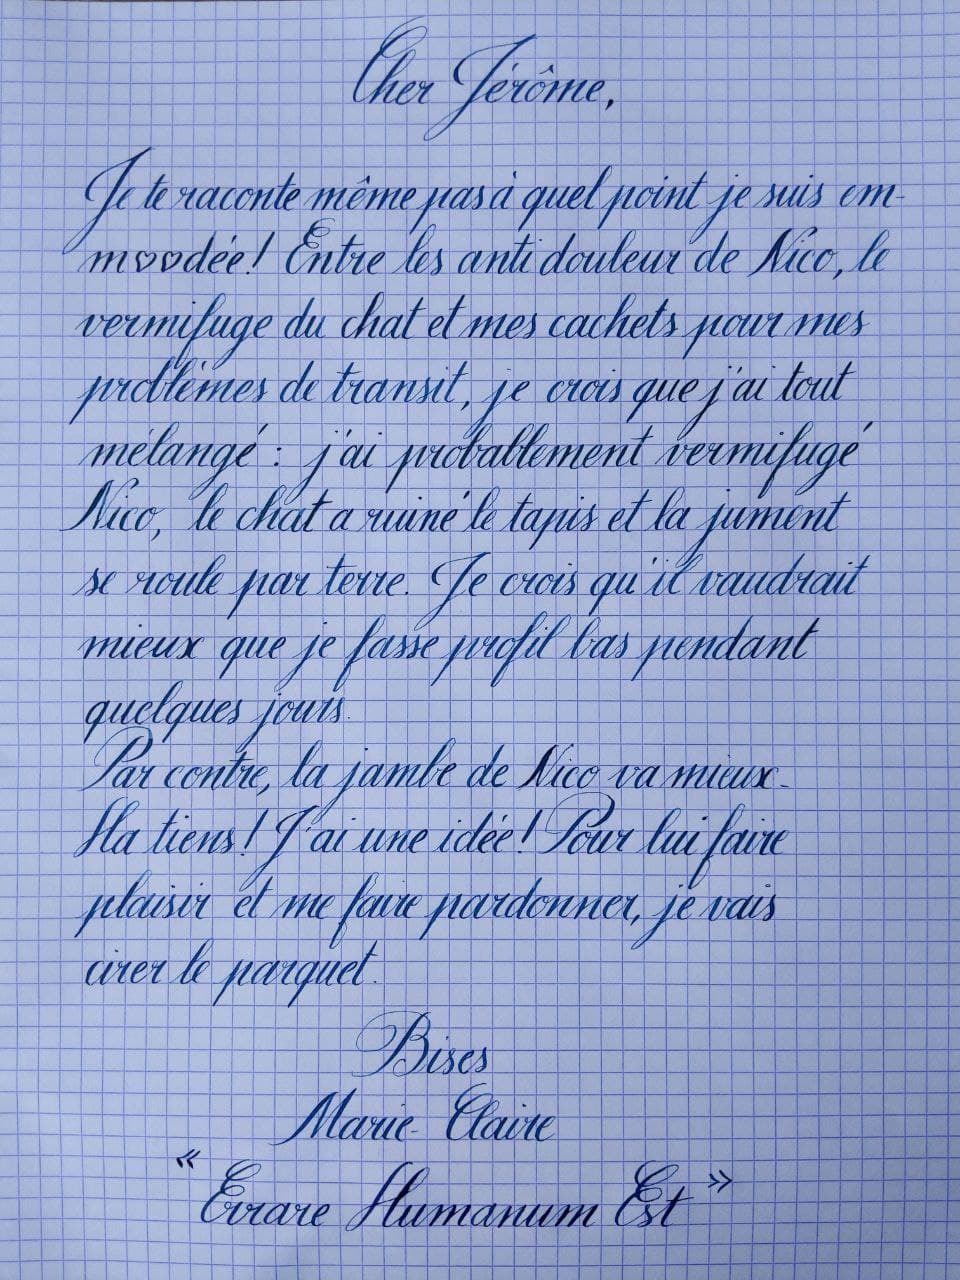 Cher Jérôme,
Je te raconte même pas à quel point je suis em-
m♡♡dée! Entre les anti douleur de Nico, le
vermifuge du chat et mes cachets pour mes
problèmes de transit, je crois que j'ai tout
mélangé : j'ai probablement vermifugé
Nico, le chat a ruiné le tapis et la jument
se roule par terre. Je crois qu'il vaudrait
mieux que je fasse profil bas pendant
quelques jours.
Par contre, la jambe de Nico va mieux.
Ha tiens! J'ai une idée! Pour lui faire
plaisir et me faire pardonner, je vais
cirer le parquet.
Bises
Marie-Claire
« Errare Humanum Est »